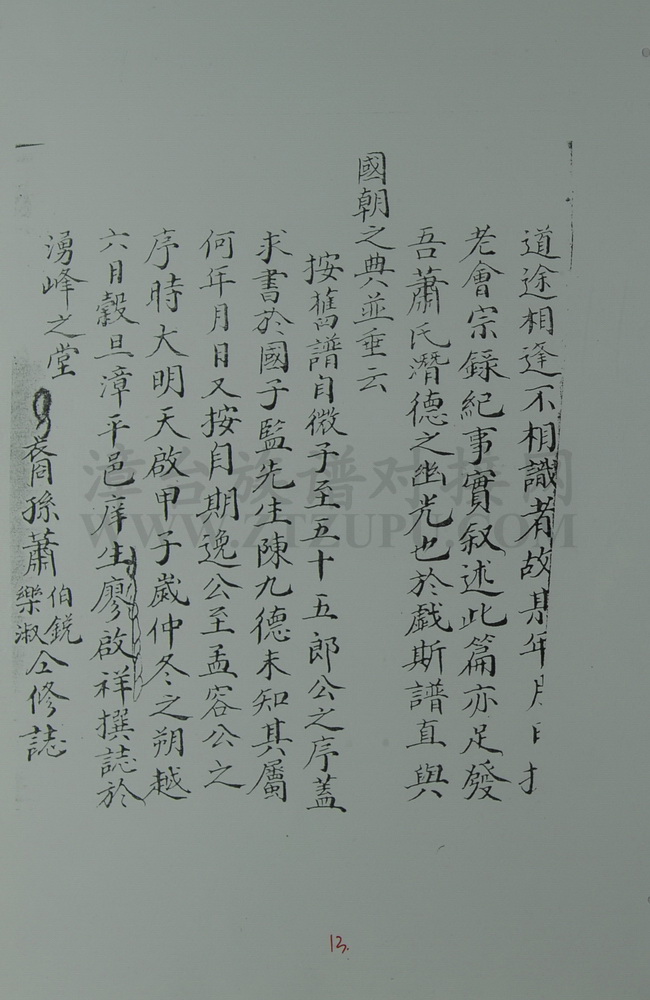 道途相逢不相識者故某年月日
老會宗錄紀事實叙述此篇亦足發
吾蕭氏潛德之幽光也於戲斯譜直與
國朝之典並垂云
按舊譜自微子至五十五郎公之序蓋
求書於國子監先生陳九德未知其屬
何年月日又按自期逸公至孟容公之
序時大明天啟甲子歲仲冬之朔越
六月穀旦漳平邑庠生廖啟祥撰誌於
湧峰之堂
裔孫蕭伯銳樂淑仝修誌
漳台族谱对接网
WWW.ZTZUPU.COM
13.